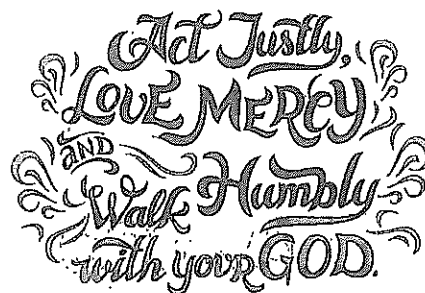 Act Justly,
LOVE MERCY
AND
Walk Humbly
with your GOD.